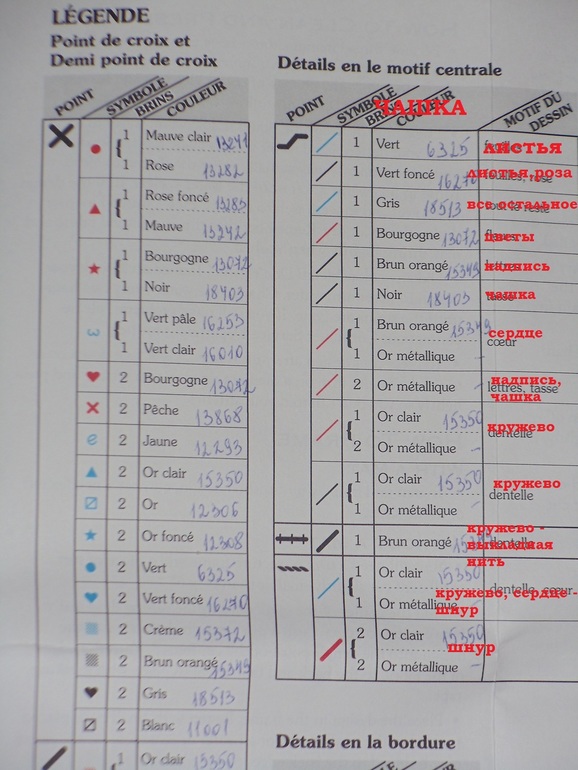 LÉGENDE
Point de croix et
Demi point de croix
POINT
SYMBOLE
BRINS
COULEUR
1 Mauve clair 13241
1 Rose 13282
1 Rose foncé 13283
1 Mauve 13242
1 Bourgogne 13072
1 Noir 18403
1 Vert pâle 16253
1 Vert clair 16010
2 Bourgogne 13072
2 Pêche 13868
2 Jaune 12293
2 Or clair 15350
2 Or 12306
2 Or foncé 12308
2 Vert 6325
2 Vert foncé 16270
2 Crème 15372
2 Brun orangé 15349
2 Gris 18513
2 Blanc 11001
1 Or clair 15350
Détails en le motif centrale
POINT
SYMBOLE
ЧАШКА
MOTIF DU
DESSIN
1 Vert 6325 листья
1 Vert foncé 16270 листья роза
1 Gris 18513 все остальное
1 Bourgogne 13072 цветы
1 Brun orangé 15349 надпись
1 Noir 18403 чашка
1 Brun orangé 15349 сердце
cœur
1 Or métallique -
2 Or métallique - lettres, tasse
надпись,
чашка
1 Or clair 15350 кружево
dentelle
2 Or métallique -
1 Or clair 15350 кружево
dentelle
1 Or métallique -
1 Brun orangé
кружево -
выкладная
нить
1 Or clair 15350
dentelle, cœur
1 Or métallique
кружево, сердце-
шнур
2 Or clair 15350
шнур
2 Or métallique -
Détails en la bordure